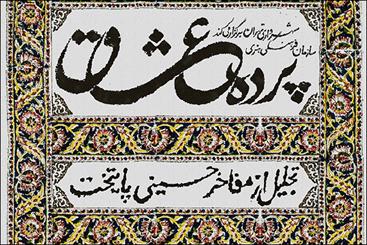 سازمان فرهنگی هنری
شهرداری تهران برگزار می‌کند
پرده عشاق
تجلیل از مفاخر حسینی پایتخت